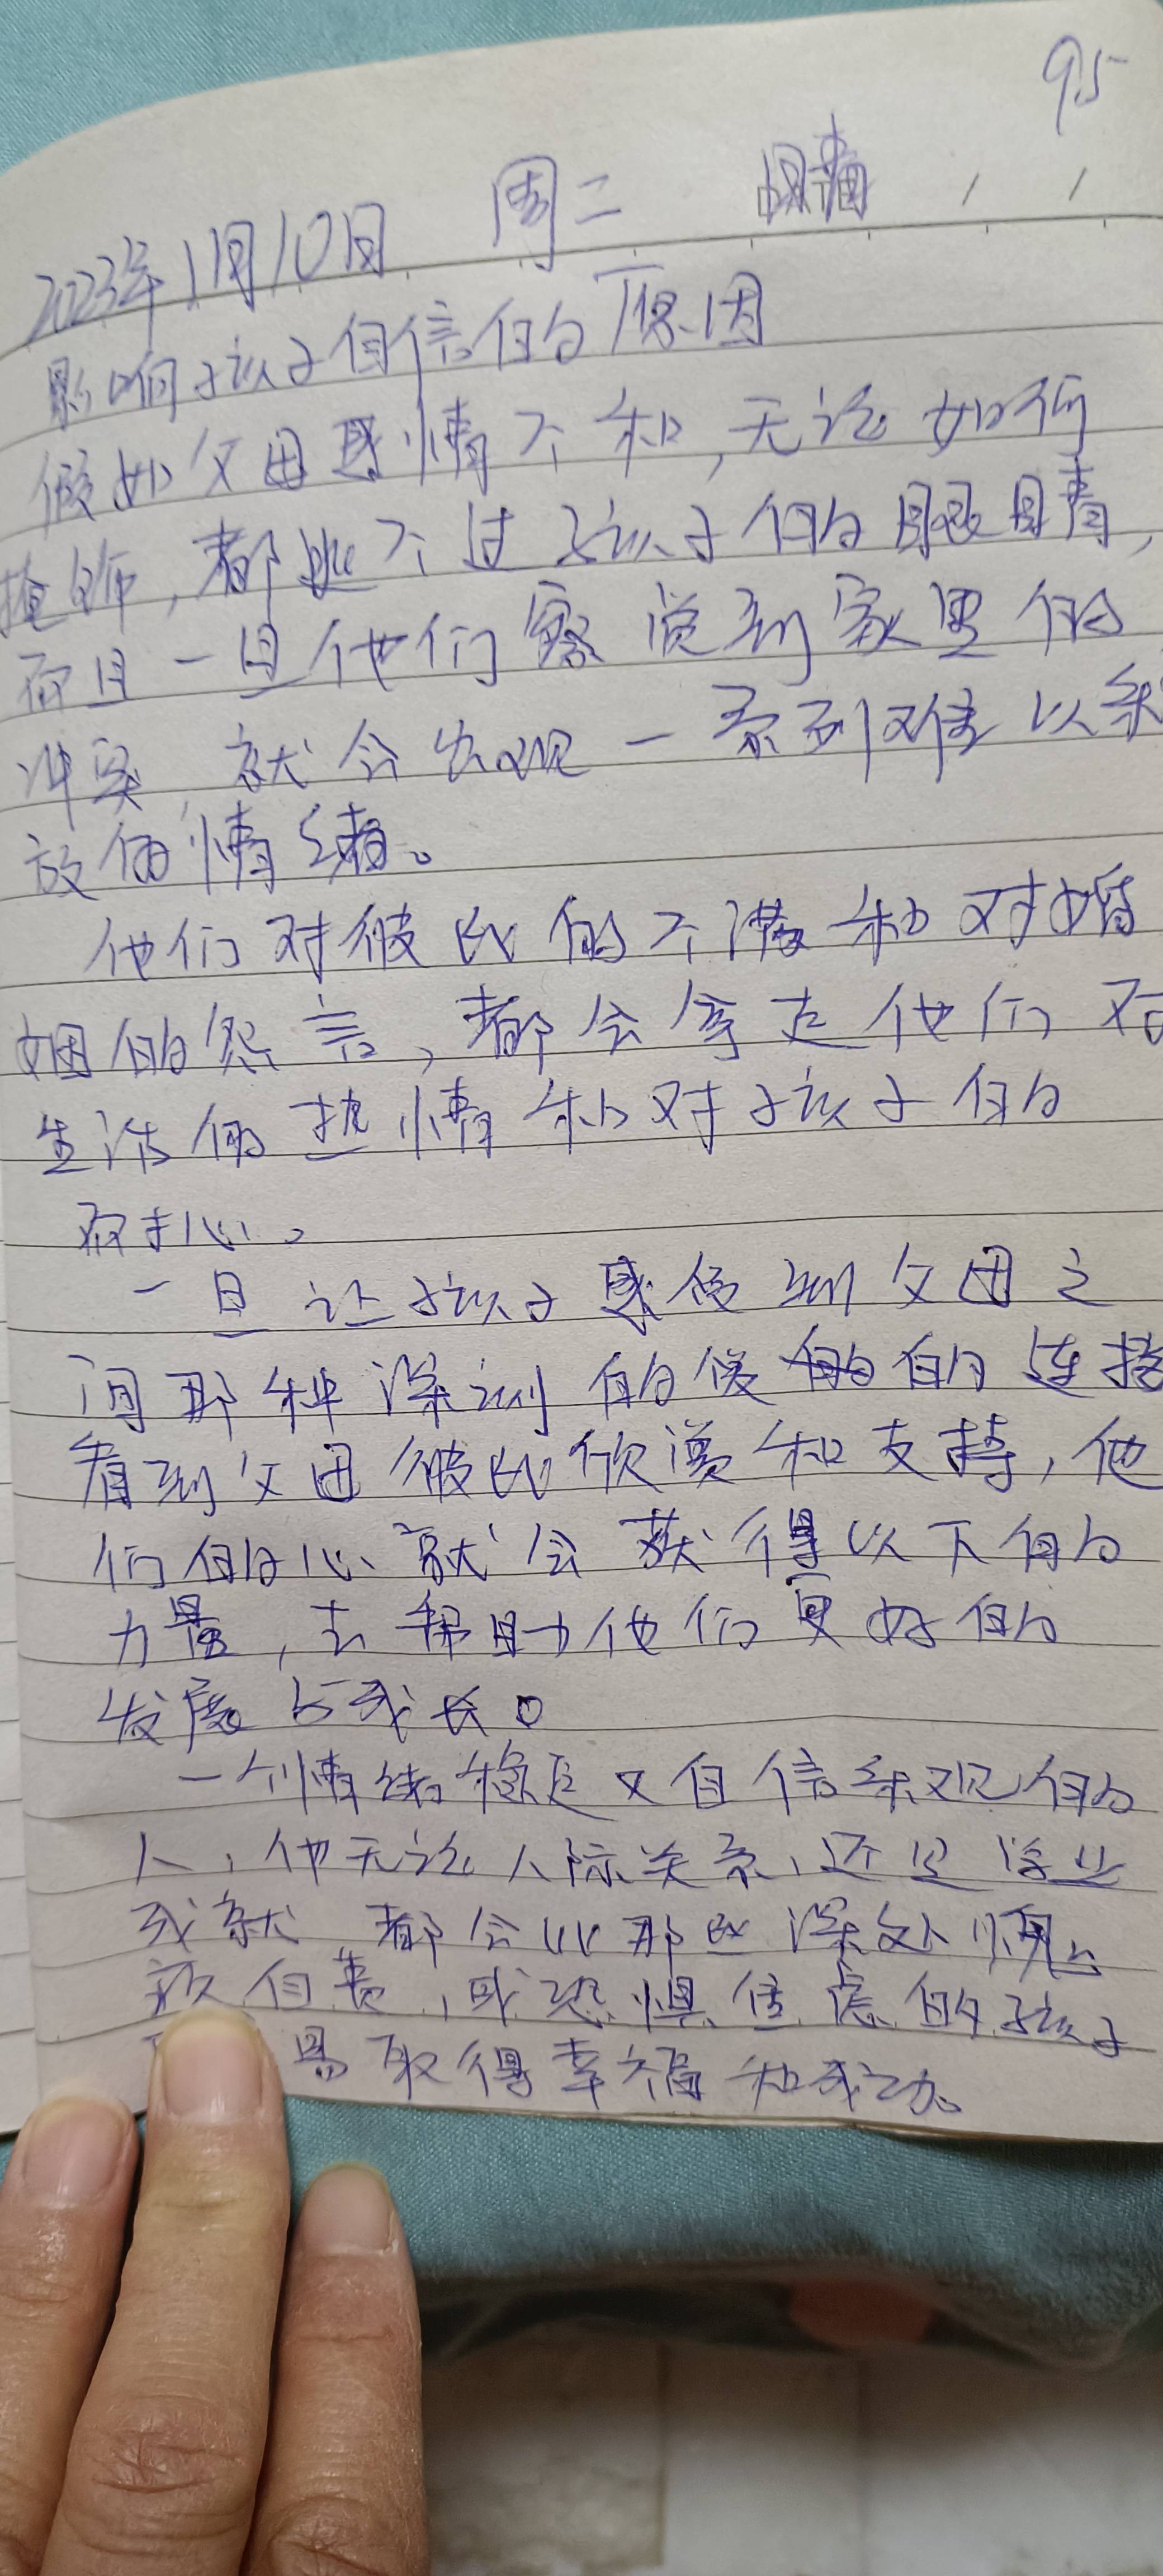 95
2023年1月10日 周二 晴
影响孩子自信的原因
假如父母感情不和,无论如何
掩饰,都逃不过孩子的眼睛,
而且一旦他们察觉到家里的
冲突,就会出现一系列难以释
放的情绪。
他们对彼此的不满和对婚
姻的怨言,都会拿走他们对
生活的热情和对孩子的
耐心。
一旦让孩子感受到父母之
间那种深刻的爱的连接
看到父母彼此欣赏和支持,他
们的心就会获得以下的
力量,去帮助他们更好的
发展与成长。
一个情绪稳定又自信乐观的
人,他无论人际关系,还是学业
成就 都会比那些深处
自责,或恐惧焦虑的孩子
易取得幸福和成功。